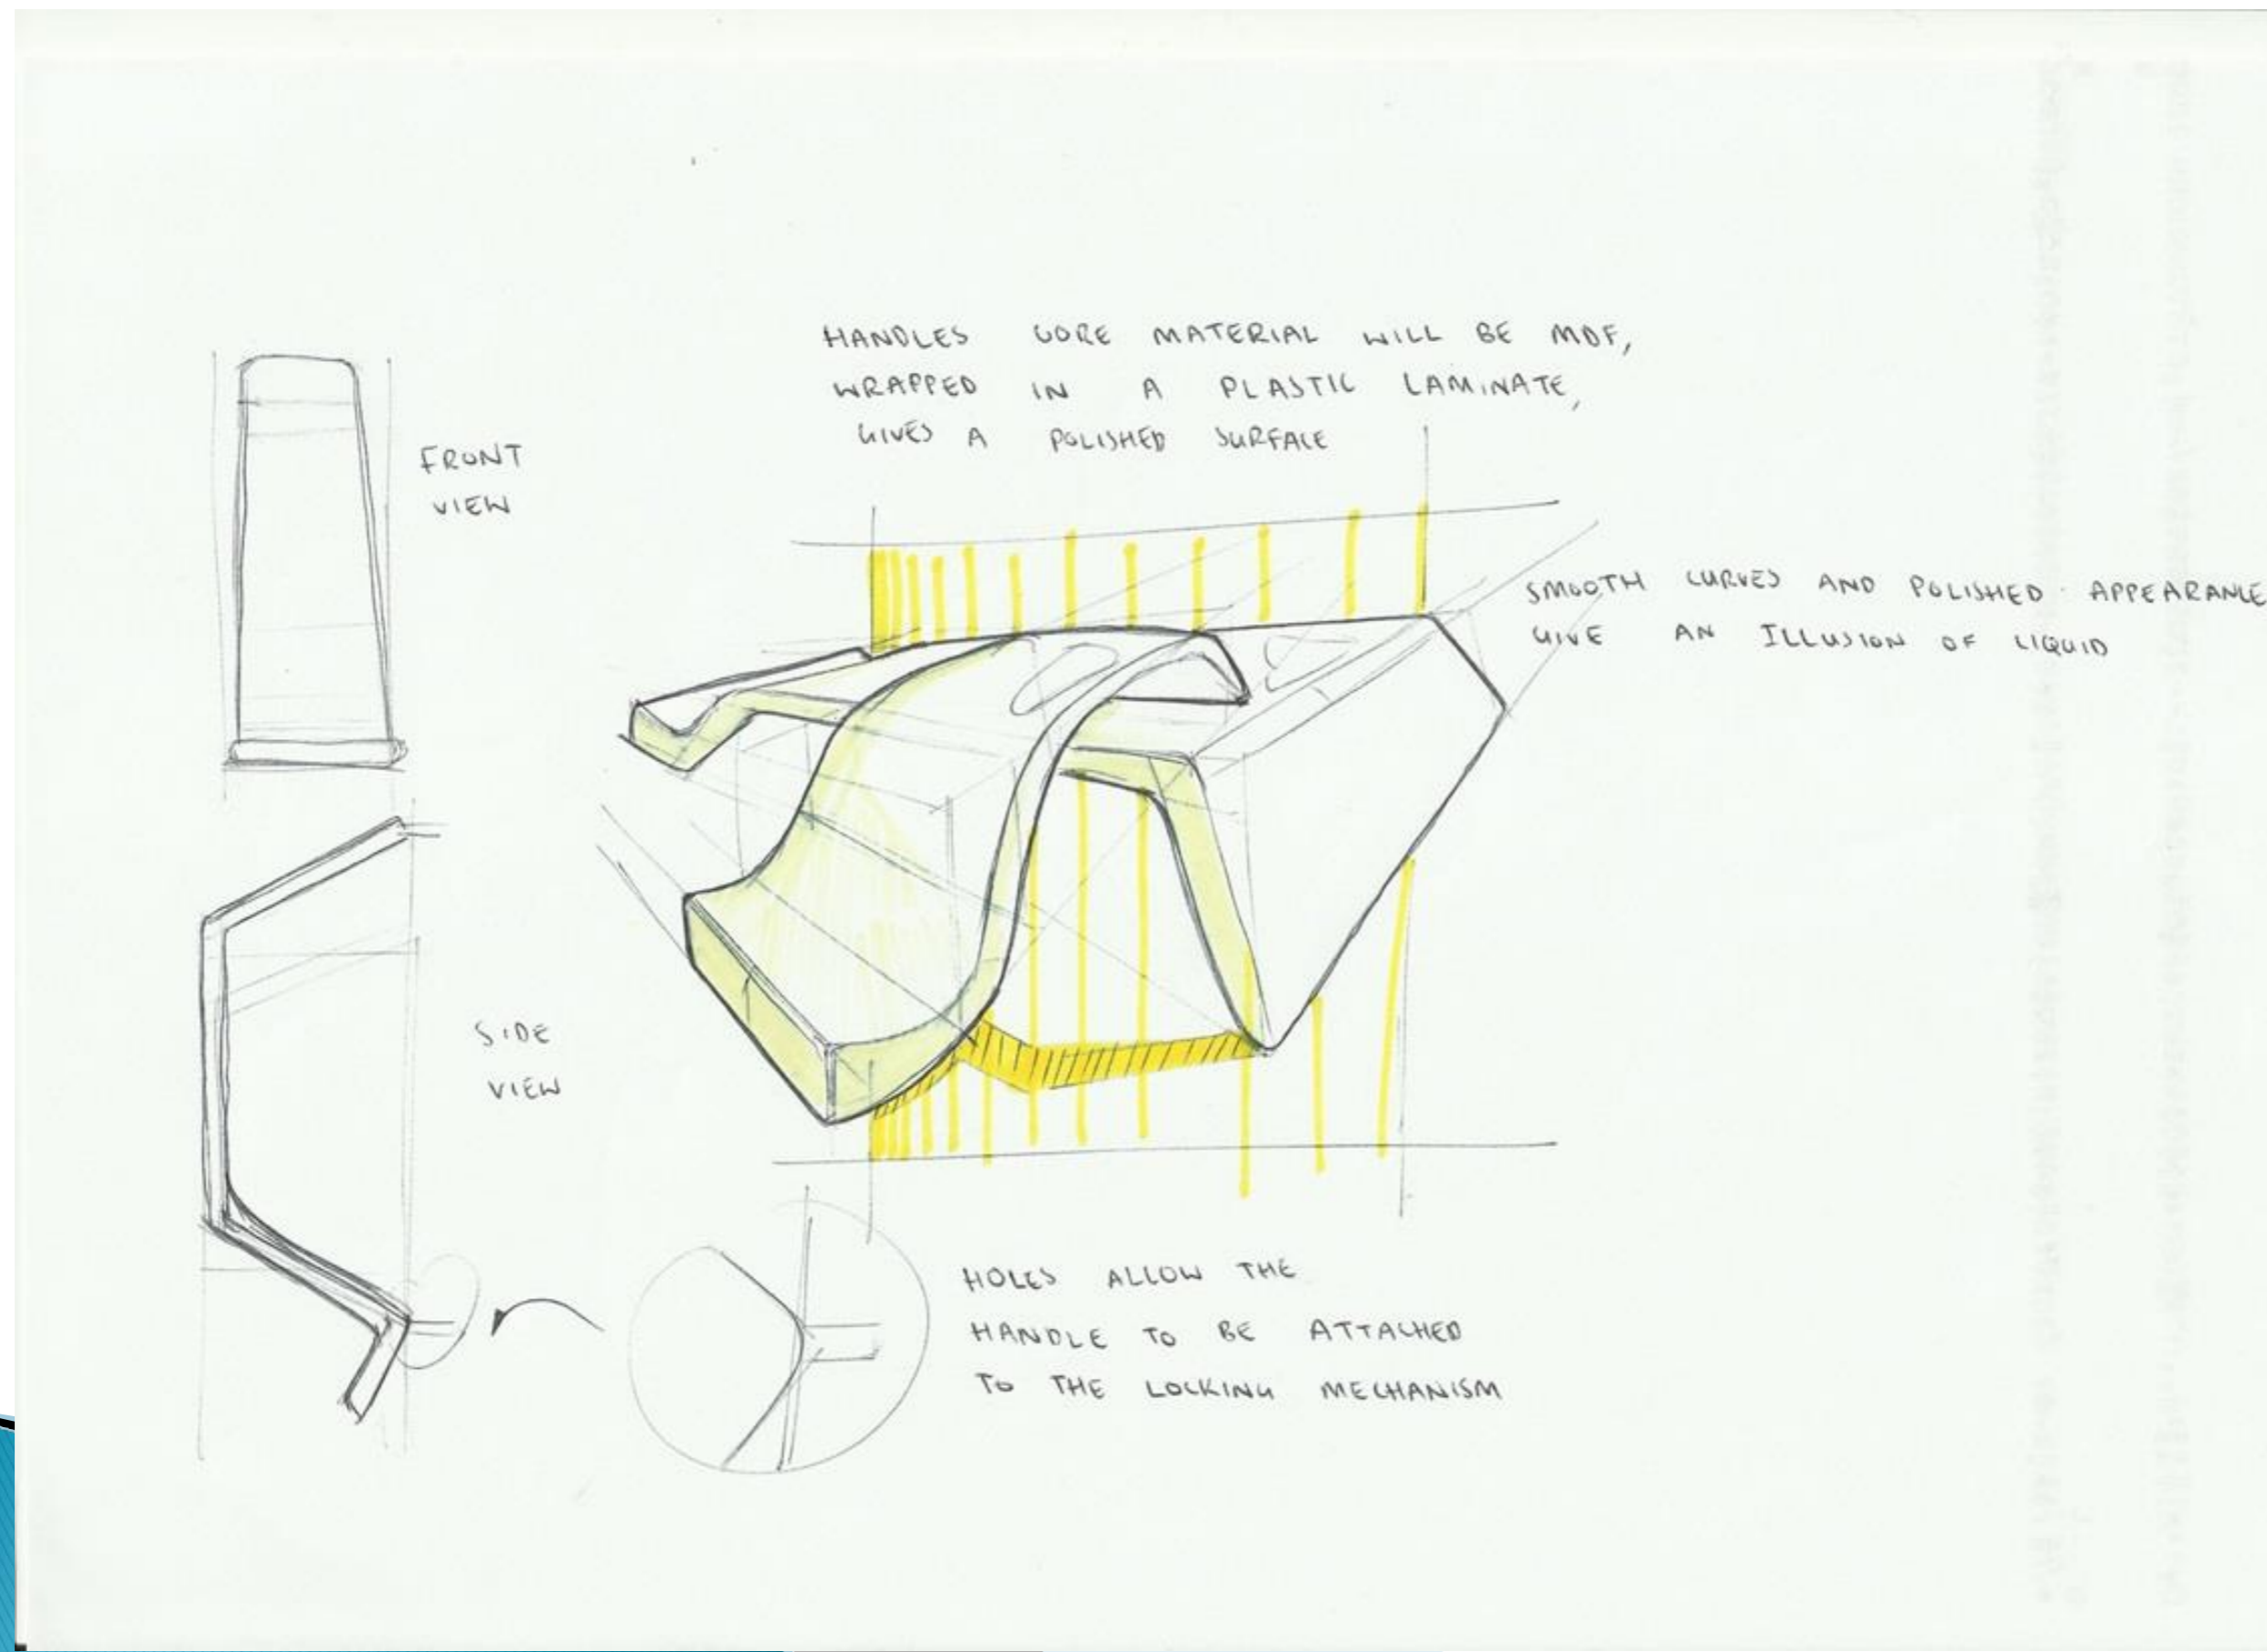 HANDLES CORE MATERIAL WILL BE MDF,
WRAPPED IN A PLASTIC LAMINATE,
GIVES A POLISHED SURFACE
FRONT
VIEW
SMOOTH CURVES AND POLISHED APPEARANCE
GIVE AN ILLUSION OF LIQUID
SIDE
VIEW
HOLES ALLOW THE
HANDLE TO BE ATTACHED
TO THE LOCKING MECHANISM